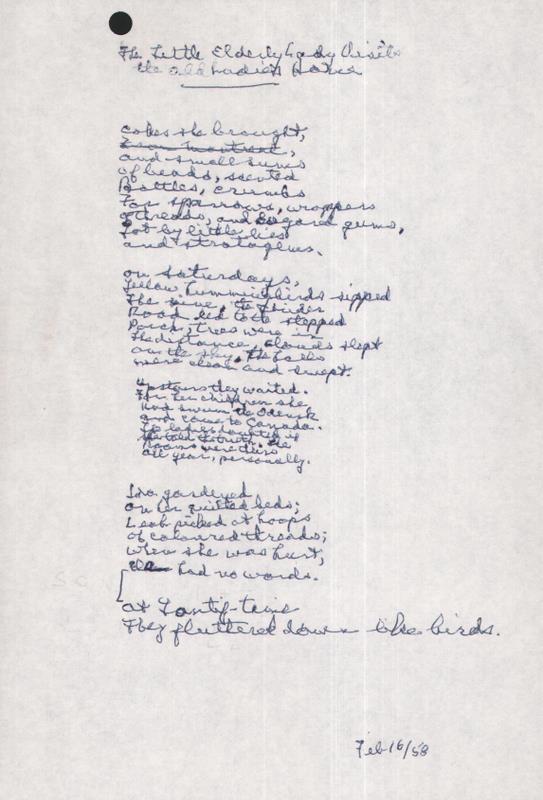 The Little Elderly Lady Visits
the old Ladies Home
cakes she brought,
and small sums
of beads, scented
Bottles, crumbs
For sparrows, wroppers
of threads, and sugared gums,
Got by little lies
and stratagems.
on Saturdays,
Yellow hummingbirds sipped
The vine, the
Road led to the stepped
Porch, trees were in
the distance, clouds slept
on the sky, the halls
were clean and swept.
Upstairs they waited.
For her children she
Had swum the
and come to Canada.
Rooms were hers
all year, personally.
Ida gardened
on her quilted beds;
Leah picked at hoops
of coloured threads;
When she was hurt,
had no words.
at time
They fluttered down like birds.
Feb 16/58